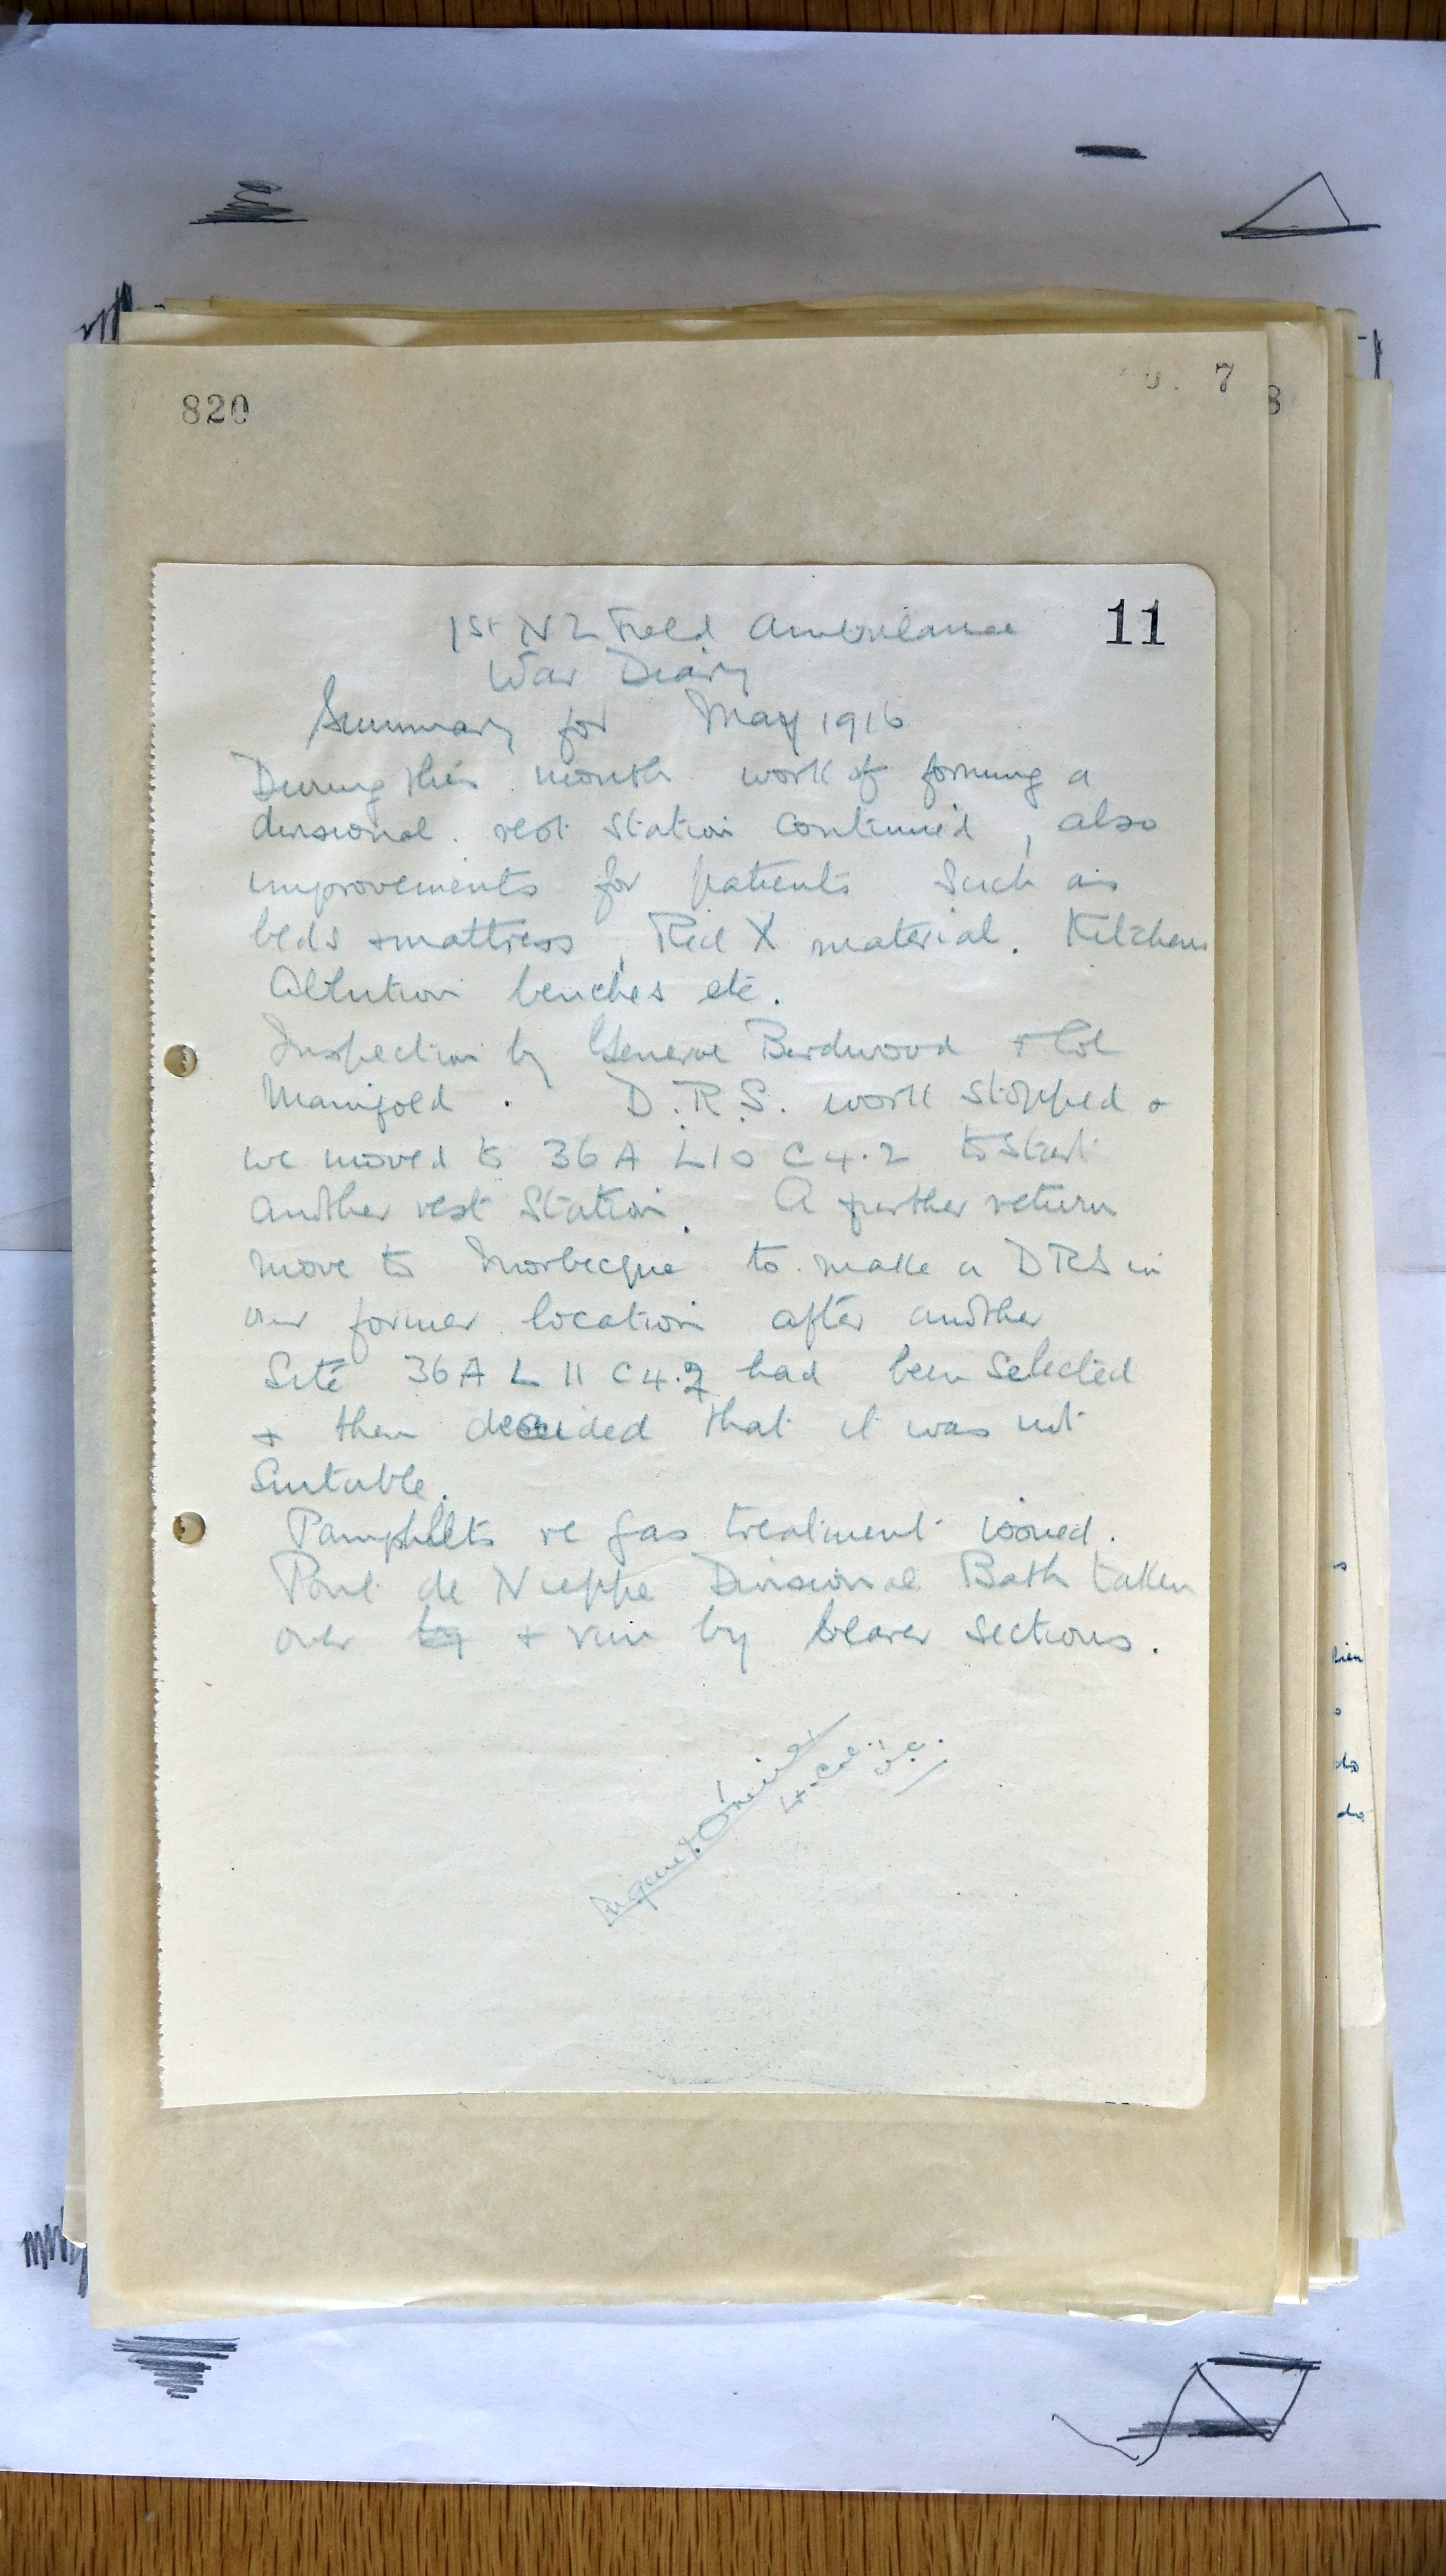 820
7
8
11
1st N Z Field Ambulance
War Diary
Summary for May 1916
During this month work of forming a
divisional rest station continued, also
improvements for patients such as
beds + mattress, Red X material. Kitchens
Ablution benches etc.
Inspection by General Birdwood + Col
Manifold. D.R.S. work stopped +
we moved to 36 A L10 C 4.2 to start
another rest station. A further return
move to Morbecque to make a DRS in
our former location after another
site 36 A L 11 C 4.2 had been selected
+ then decided that it was not
suitable.
Pamphlets re gas treatment issued.
Pont de Nieppe Divisional Bath taken
over + run by bearer sections.
Lt-Col. O.C.
do
do